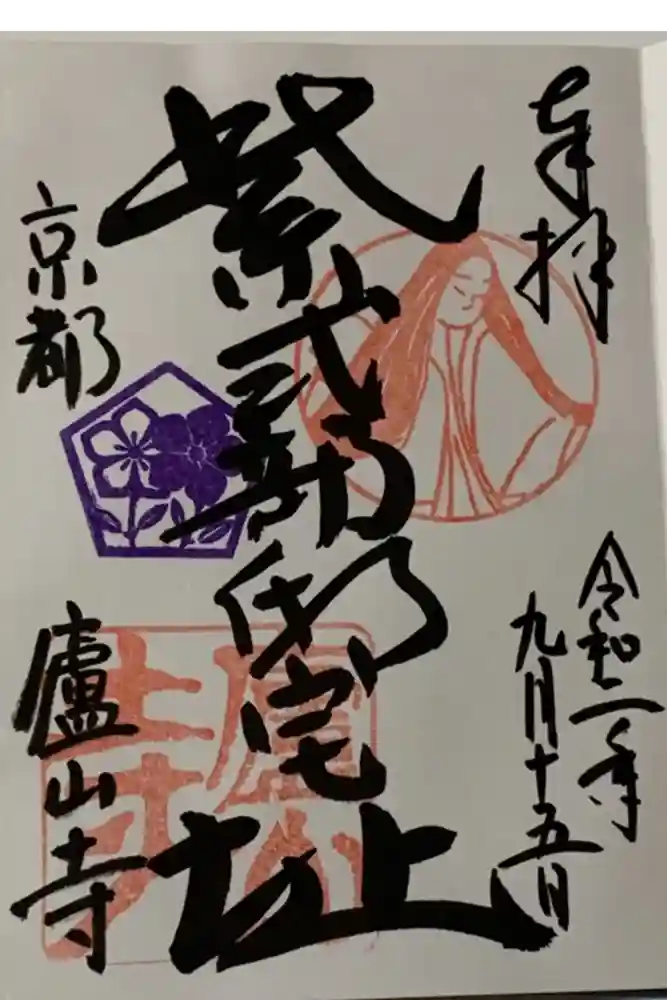 奉拝
令和二年
九月十五日
紫式部邸宅址
京都
廬山寺